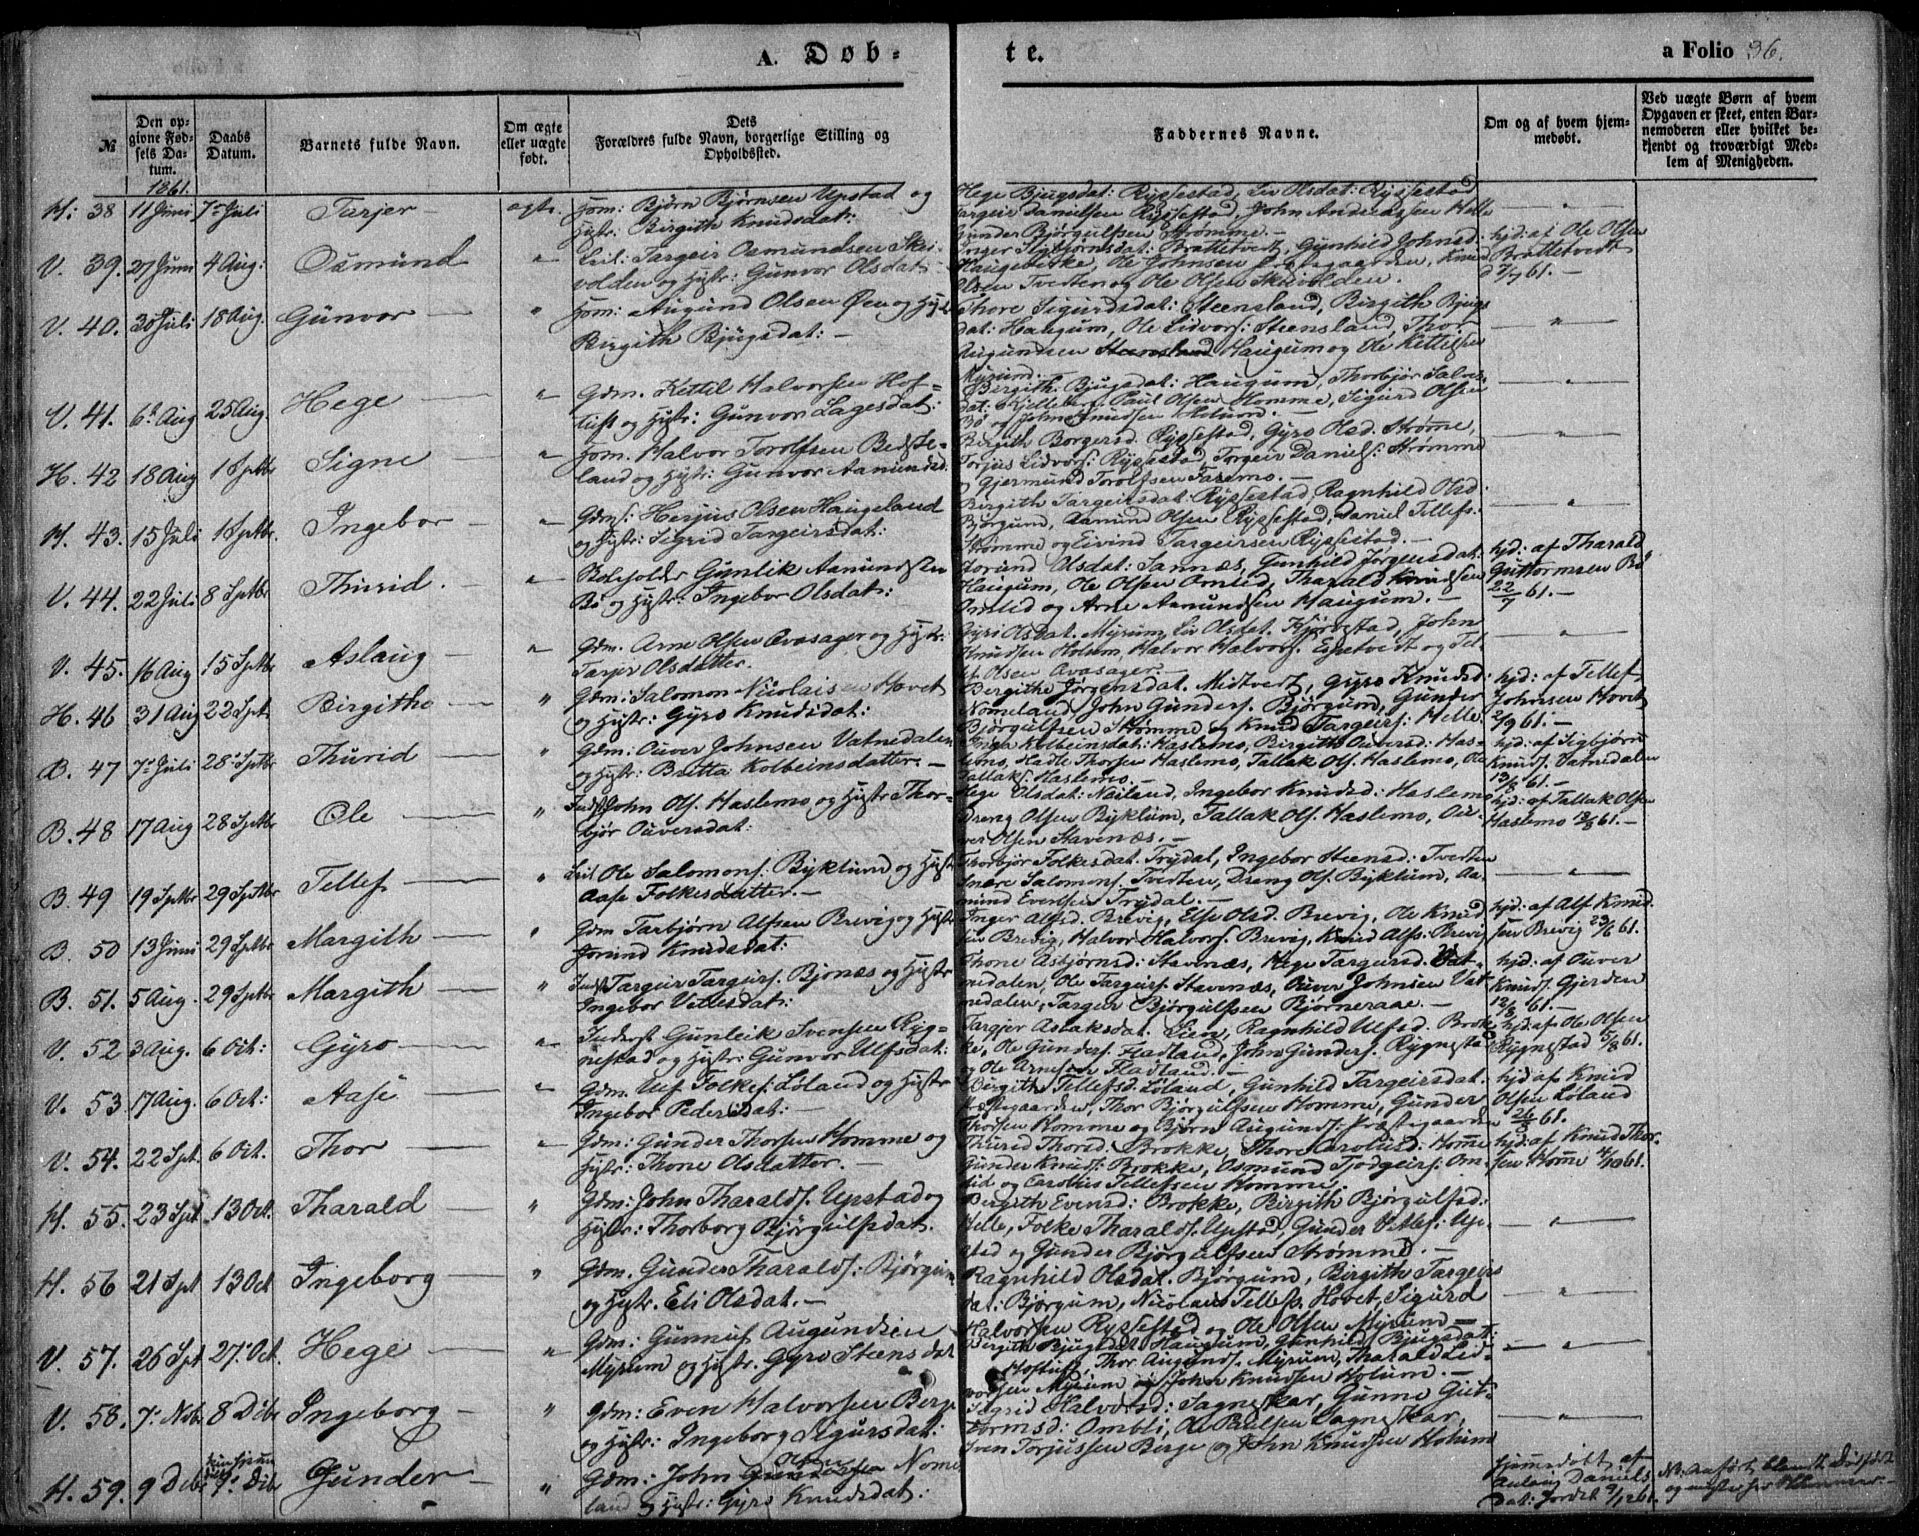 A. Døb-
te.
a Folio 36.
№
Den op-
givne Fød-
sels Da-
tum.
1861.
Daabs
Datum.
Barnets fulde Navn.
Om ægte
eller uægte
født.
Dets
Forældres fulde Navn, borgerlige Stilling og
Opholdssted.
Faddernes Navne.
Om og af hvem hjem-
medøbt.
Ved uægte Børn af hvem
Opgaven er skeet, enten Bar-
nemoderen eller hvilket be-
kjendt og troværdigt Med-
lem af Menigheden.
H. 38 11 Juni 7de Juli Tarjer — ægte Hom: Bjørn Bjørnsen Upstad og
Hustr: Birgith Knudsdat:
Hege Bjugsdat: Rysestad, Liv Olsdat: Rysestad
Targeir Danielsen Rysestad, John Andreassen Helle
Gunder Bjørgulfsen Strømme. —
V. 39. 27 Juni 4 Aug: Osmund " Targeir Osmundsen Skei-
volden og Hustr: Gunvor Olsdat:
Inger Sigbjørnsdat: Brottetvedt, Gunhild Johnsd.
Ole Johnsen Præstegaarden, Knud
Olsen Tveiten og Ole Olsen Skeivolden.
hjd: af Ole Olsen
Brottetvedt
7/7 61. —
V. 40. 30 Juli 18 Aug. Gunvor — " Hom: Augund Olsen Øen og Hustr
Birgith Bjugsdat: —
Thore Sigurdsdat: Steensland, Birgith Bjugs-
dat: Haugum, Ole Lidvors: Steensland, Thor
Augundsen Haugum og Ole Kettilsen
Myrum. —
V. 41. 6te Aug 25 Aug. Hege — " Gdm. Kettil Halvorsen Hof-
tuft og Hustr: Gunvor Lagesdat:
Birgith Bjugsdat: Haugum, Thorbjør Salves-
dat: Kjelleberg, Paul Olsen Homme, Sigurd Olsen
Bø og John Knudsen Holum. —
H. 42 18 Aug 1 Sptbr Signe — " Hom. Halvor Torolfsen Besste-
land og Hustr: Gunvor Aamundsd.
Birgith Borgersd. Rysestad, Gyro Olsd. Strømme,
Torjus Lidvors: Rysestad, Torgeir Daniels: Strømme
og Gjermund Torolfsen Faremo. —
H. 43. 15 Juli 1 Sptbr. Ingebor — " Gdm: Herjus Olsen Haugeland
og Hustr: Sigrid Targeirsdat:
Birgith Targeirsdat: Rysestad, Ragnhild Olsd.
Bjørgum, Aamund Olsen Rysestad, Daniel Tellefs:
Strømme og Eivind Targeirsen Rysestad. —
V. 44. 22 Juli 8 Sptbr Thurid. — " Gunlik Aamundsen
Bø og Hustr: Ingebor Olsdat:
Jorund Olsdat: Sannæs, Gunhild Jørgensdat:
Haugum, Ole Olsen Omlid, Tharald Knudsen
Omlid og Arne Aamundsen Haugum. —
hjd: af Tharald
Guttormsen Bø
22/7 61. —
V. 45. 16 Aug 15 Sptbr Aslaug — " Gdm. Arne Olsen Ovasager og Hustr:
Tarjer Olsdatter.
Gyri Olsdat. Myrum, Liv Olsdat. Kjørvestad, John
Knudsen Holum, Halvor Halvors. Egstvedt og Tel-
lef Olsen Ovasager. —
H. 46 31 Aug 22 Spt. Birgithe — " Gdm: Salomon Nicolaisen Hovet
og Hustr: Gyro Knudsdat:
Bergithe Jørgensdat. Midtvert, Gyro Knudsd:
Nomeland, John Gunders. Bjørgum, Gunder
Bjørgulfsen Strømme og Knud Targeirs: Helle.
hjd: af Tellef
Johnsen Hovet
2/9 61. —
B. 47 7de Juli 28 Sptbr Thurid — " Gdm: Ouver Johnsen Vatnedalen
og Hustr: Britta Kolbeinsdatter. —
Inga Kolbeinsdat: Haslemo, Birgith Ouversd: Has-
lemo, Hadle Thorsen Haslemo, Tallak Ols. Haslemo, Ole
Tallaks: Haslemo. —
hjd: af Sigbjørn
Knuds. Vatnedalen
13/8 61. —
B. 48 17 Aug 28 Sptbr Ole — " John Ols. Haslemo, og Hustr Thor-
bjør Ouversdat:
Hege Olsdat: Neiland, Ingebor Knudsd: Haslemo
Dreng Olsen Byklum, Tallak Ols. Haslemo, Ou-
ver Olsen Stavenæs. —
hjd: af Tallak Olsen
Haslemo 61. —
B. 49 19 Sptbr 29 Sptbr Tellef — " Ole Salomons: Byklum og Hustr
Aase Folkesdatter. —
Thorbjør Folkesdat. Trydal, Ingebor Steensd: Tverten
Snære Salomons. Tverten, Dreng Ols. Byklum, Aa-
mund Evensen Trydal. —
B. 50 13 Juni 29 Sptbr Margith — " Gdm Tarbjørn Alfsen Brevig og Hustr
Jorund Knudsdat:
Inger Alfsd. Brevig, Else Olsd. Brevig, Ole Knud-
sen Brevig, Halvor Halvors. Brevig, Knud Alfs: Brevig
hjd: af Alf Knud-
sen Brevig 23/6 61.
B. 51. 5 Aug. 29 Sptbr Margith — " Targeir Targeirs. Bjønæs og Hustr
Ingebor Vetlesdat:
Thone Asbjørnsd: Stavnæs, Hege Targeirsd. Vat-
nedalen, Ole Targeirs. Stavenæs, Ouver Johnsen Vat-
nedalen, Targeir Bjørgulfsen Bjørneraae. —
hjd. af Ouver
Knuds. Gjerden
12/8 61. —
V. 52 3 Aug. 6 Oct: Gyro — " Inderst Gunleik Svensen Ryg-
nestad og Hustr: Gunvor Ulfsdat:
Targjer Aslaksdat. Lien, Ragnhild Ulfsd. Brok-
ke, Ole Gunders. Fladland, John Gunders. Rygnestad
og Ole Arnesen Fladland. —
hjd: af Ole Olsen
Rygnestad 5/8 61.
V. 53 17 Aug. 6 Oct: Aase — " Gdm. Ulf Folkes: Løland og Hustr
Ingebor Pedersdat: —
Birgith Tellefsd. Løland, Gunhild Targeirsdat.
Præstegaarden, Thor Bjørgulfsen Homme, Gunder
Thorsen Homme og Bjørn Augunds: Præstegaarden
hjd af Knud
Olsen Løland
26/8 61.
V. 54. 22 Spt. 6 Oct. Thor — " Gdm: Gunder Thorsen Homme og
Hustr: Thone Olsdatter. —
Thurid Thorsd. Brokke, Thore Carolusd: Homme
Gunder Knuds: Brokke, Osmund Tjodgeirs: Om-
lid og Carolus Tellefsen Homme.
hjd: af Knud Thor-
sen Homme 4/10 61.
H. 55. 23 Spt. 13 Oct. Tharald " Gdm: John Tharalds. Upstad og
Hustr: Thorborg Bjørgulfsdat.
Birgith Evensd: Brokke, Birgith Bjørgulfsd:
Helle, Folke Tharalds. Upstad, Gunder Vetles: Up-
sted og Gunder Bjørgulfsen Strømme. —
H. 56 21 Spt 13 Oct Ingeborg — " Gdm. Gunder Tharalds: Bjørgum
og Hustr. Eli Olsdat. —
Ragnhild Olsdat. Bjørgum, Birgith Targeirs-
dat: Bjørgum, Nicolaus Tellefs. Hovet, Sigurd
Halvorsen Rysestad og Ole Olsen Myrum —
V. 57. 26 Spt 27 Oct. Hege — " Gdm: Gunnuf Augundsen
Myrum og Hustr. Gyro Steensdat
Birgith Bjugsdat Haugum, Gunhild Bjugsdat:
Hoftuft, Thor Augunds. Myrum, Tharald Lid-
vorsen Myrum og John Knudsen Holum. —
V. 58. 7. Nvbr 8 Dcbr Ingeborg — " Gdm: Even Halvorsen Berge
og Hustr: Ingeborg Sigursdat:
Sigrid Halvorsd: Sagneskar, Gunne Gut-
tormsd: Ombli, Ole Paulsen Sagneskar,
Even Torjussen Berge og John Knudsen Holum
H. 59. 9 Dcbr 9. Dcbr Gunder — " Gdm: John Olsen Nome-
land og Hustr: Gyro Knudsdat:
hjemmedøbt af
Aslaug Daniels-
dat: Jordet 9/12 61.